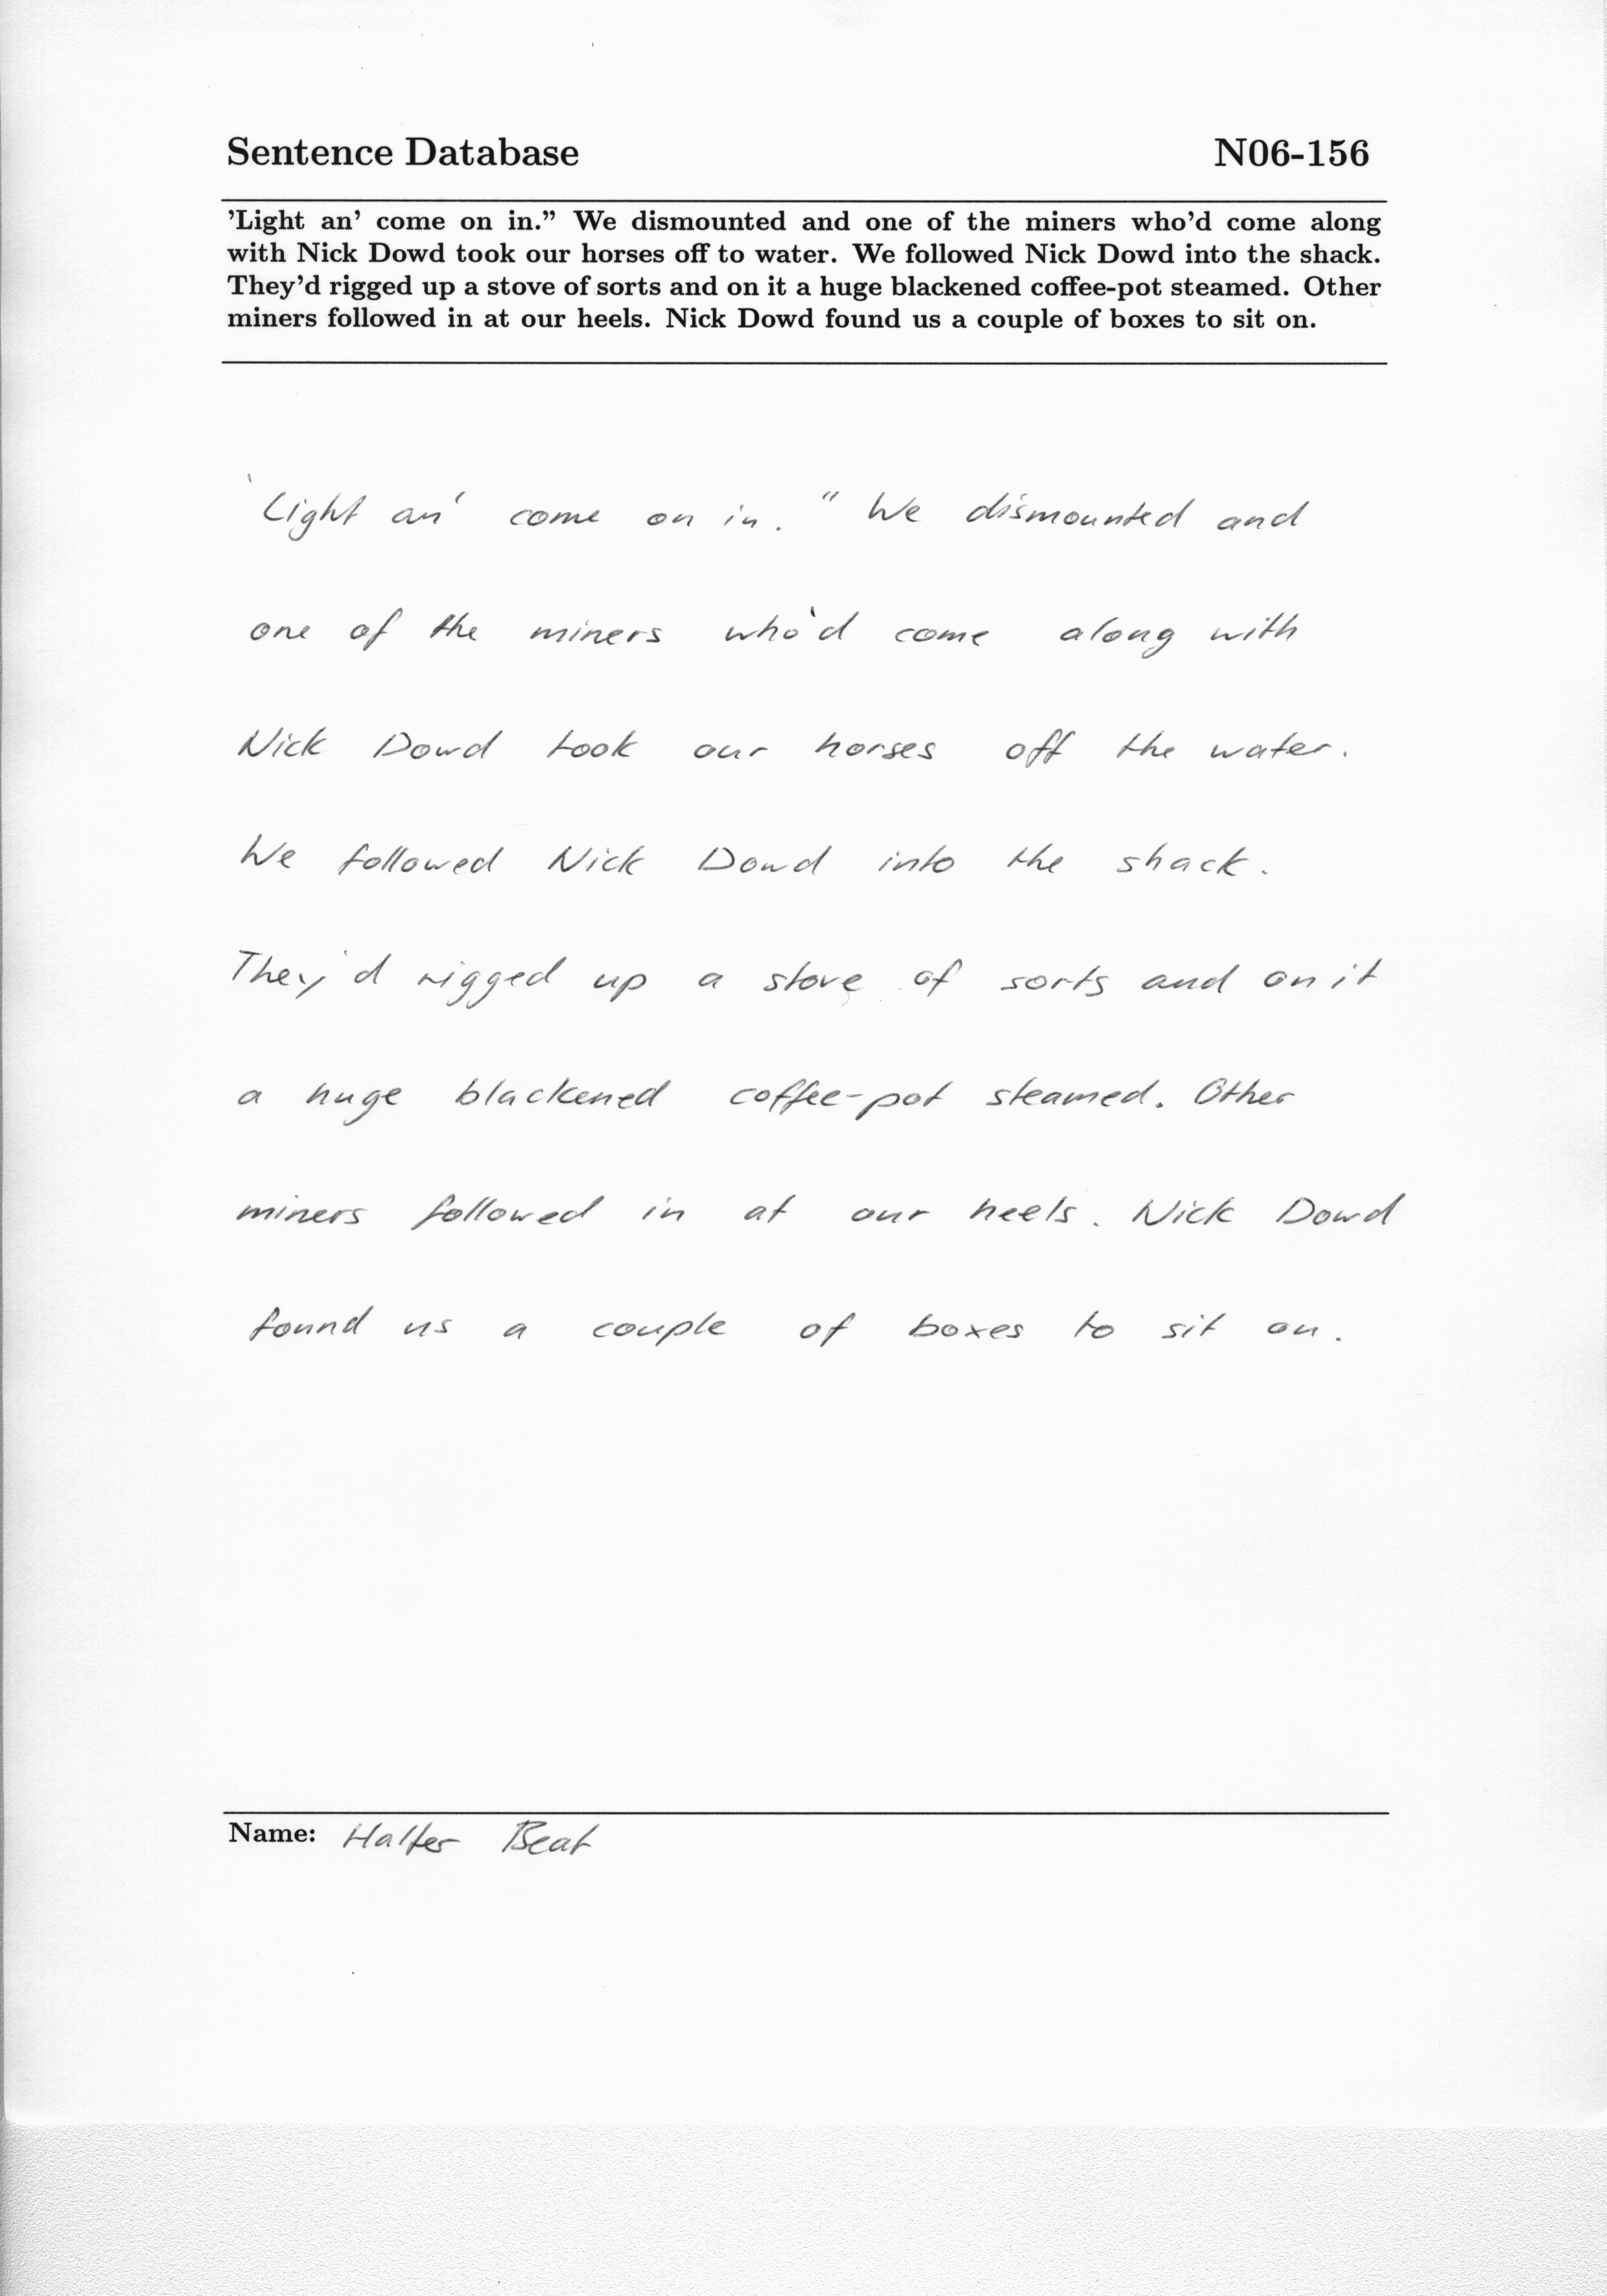 Sentence Database N06-156
’Light an’ come on in.” We dismounted and one of the miners who’d come along
with Nick Dowd took our horses off to water. We followed Nick Dowd into the shack.
They’d rigged up a stove of sorts and on it a huge blackened coffee-pot steamed. Other
miners followed in at our heels. Nick Dowd found us a couple of boxes to sit on.
'Light an' come on in." We dismounted and
one of the miners who'd come along with
Nick Dowd took our horses off the water.
We followed Nick Dowd into the shack.
They'd rigged up a stove of sorts and on it
a huge blackened coffee-pot steamed. Other
miners followed in at our heels. Nick Dowd
found us a couple of boxes to sit on.
Name: Halter Beat